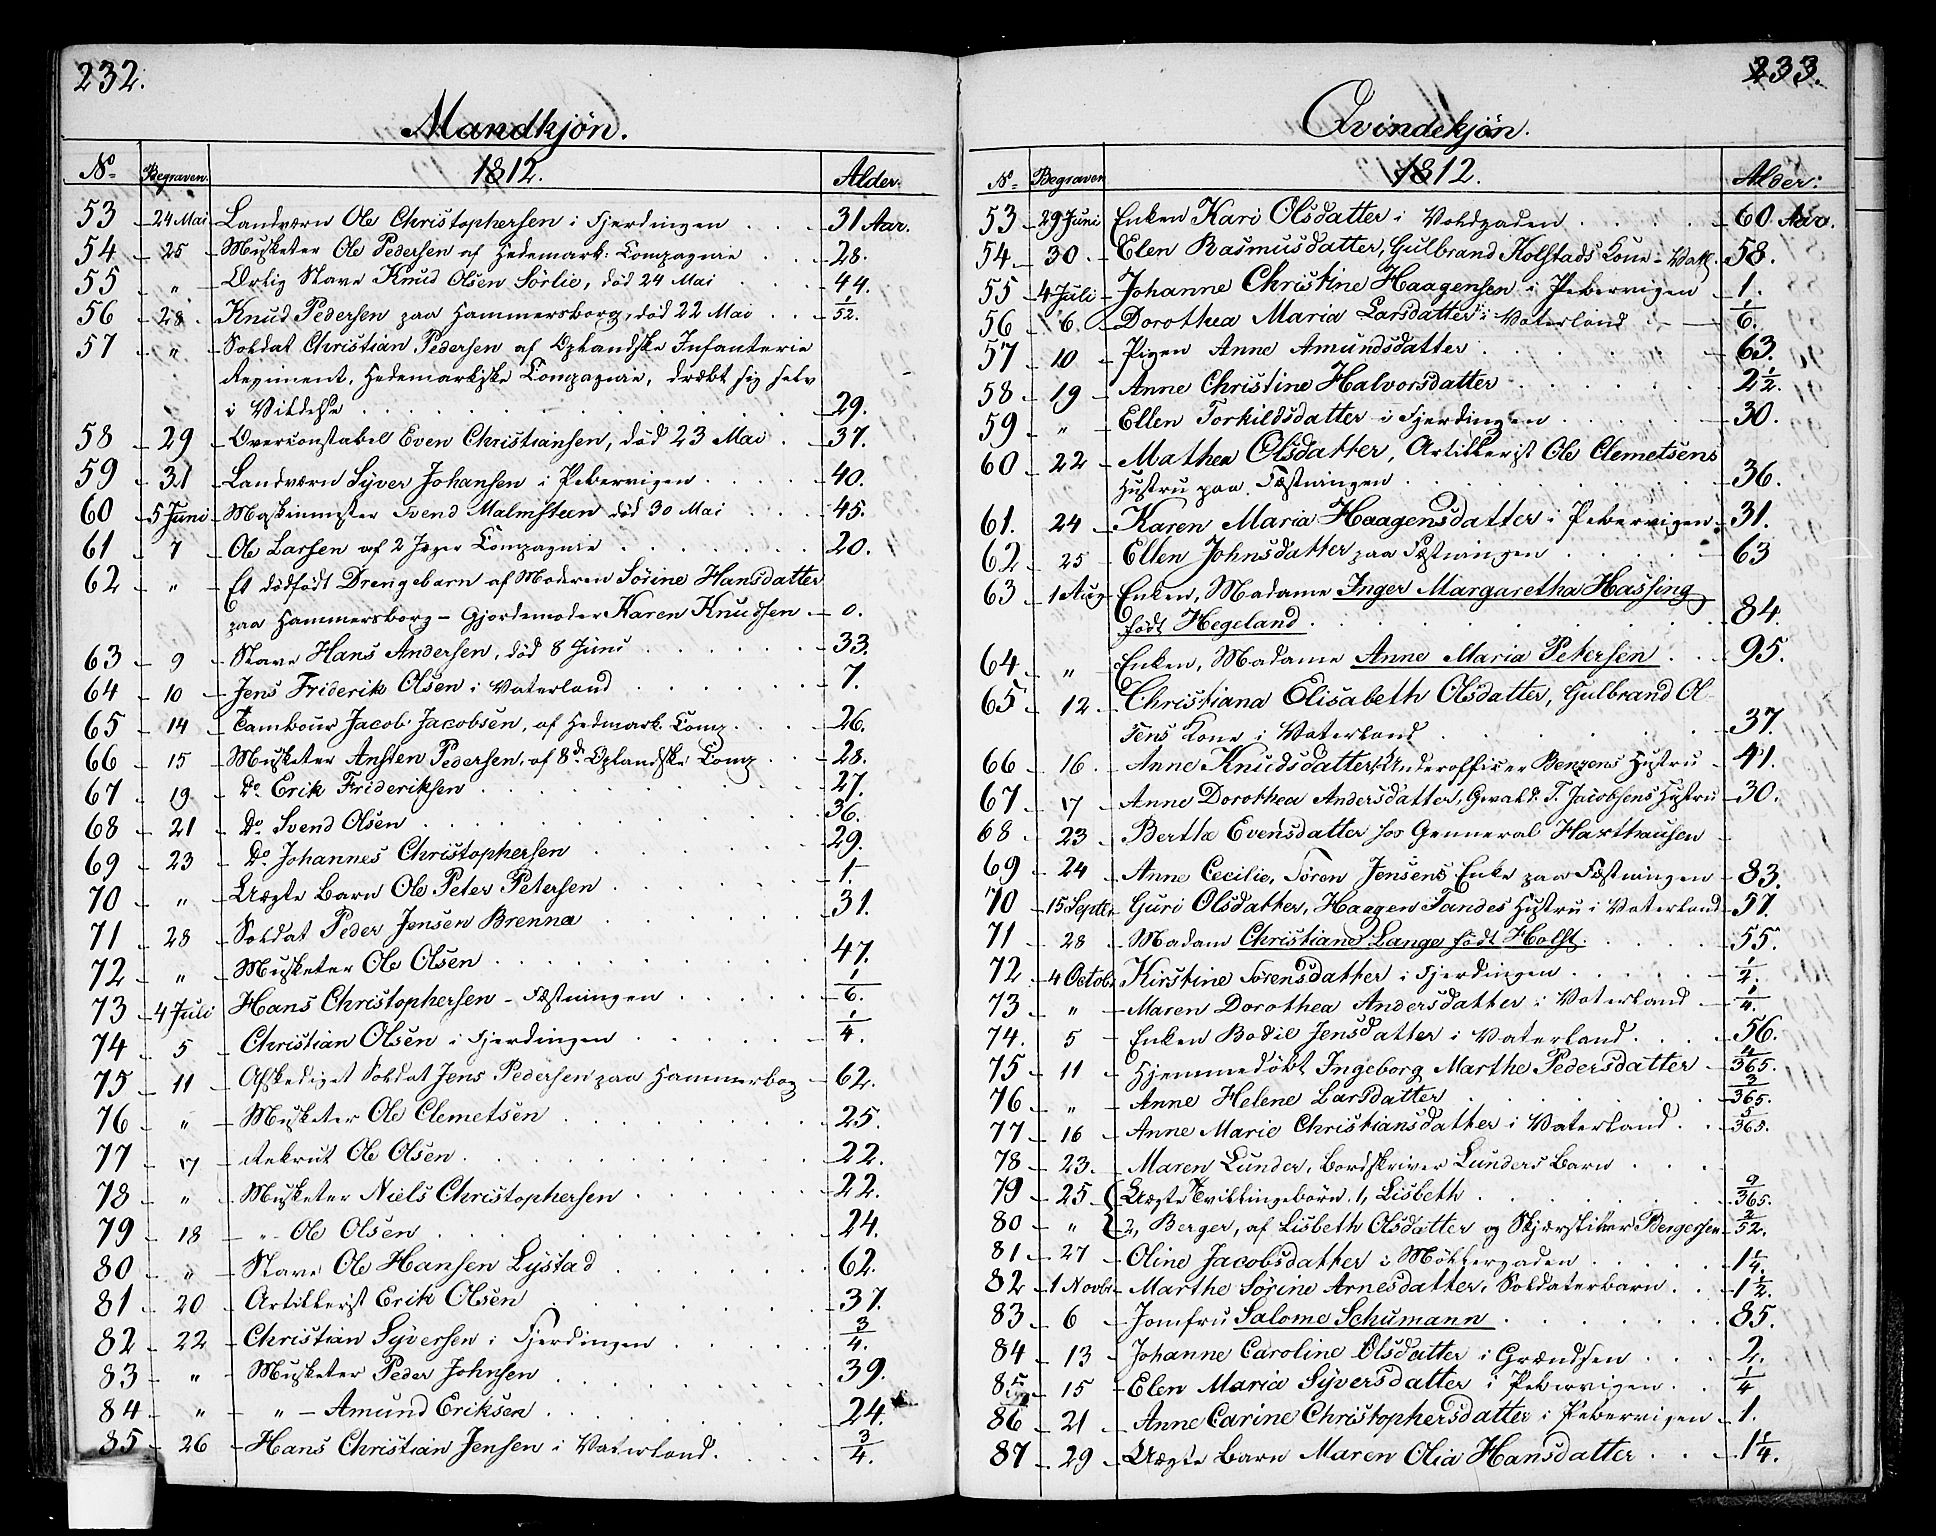 232.
Mandkjön.
No Begraven. 1812. Alder.
53 - 24 Mai - Landværn Ole Christophersen i Fjerdingen . . . - 31 Aar.
54 - 25 - Musketer Ole Pedersen af Hedemark: Compagnie . . - 28.
55 - " - Ærlig Slave Knud Olsen Sörlie, död 24 Mai . . - 44.
56 - 28 - Knud Pedersen paa Hammersborg, död 22 Mai . . - 1/52.
57 - " - Soldat Christian Pedersen af Oplandske Infanterie
Regiment, Hedemarkske Compagnie, dræbt sig selv
i Vildelse . . . - 29.
58 - 29 - Overconstabel Even Christiansen, död 23 Mai . - 37.
59 - 31 - Landværn Syver Johansen i Pebervigen . . . - 40.
60 - 5 Juni - Maskinmster Svend Malmsteen död 30 Mai . . . - 45.
61 - 7 - Ole Larsen af 2 Jæger Compagnie . . . - 20.
62 - " - Et dödfödt Drengebarn af Moderen Sörine Hansdatter
paa Hammersborg - Gjordemoder Karen Knudsen - 0.
63 - 9 - Slave Hans Andersen, död 8 Juni . . . - 33.
64 - 10 - Jens Friderik Olsen i Vaterland . . . - 7.
65 - 14 - Tambour Jacob Jacobsen, af Hedmark. Comp. . . - 26.
66 - 15 - Musketer Ansten Pedersen, af 8de Oplandske Comp . . - 28.
67 - 19 - Do Erik Frideriksen . . . - 27.
68 - 21 - Do Svend Olsen . . . 36.
69 - 23 - Do Johannes Christophersen . . . 29.
70 - " - Uægte Barn Ole Peter Petersen . . . - 1.
71 - 28 - Soldat Peder Jensen Brenna . . . 31.
72 - " - Musketer Ole Olsen . . . 47.
73 - 4 Juli Hans Christophersen - Fæstningen . . . - 1/6.
74 - 5 - Christian Olsen i Fjerdingen . . . - 1/4.
75 - 11 - Afskediget Soldat Jens Pedersen paa Hammerborg - 62.
76 - " - Musketer Ole Clemetsen . . . - 25.
77 - 17 - Rekrut Ole Olsen . . . - 22.
78 - " - Musketer Niels Christophersen . . . - 22.
79 - 18 - " - Ole Olsen . . . 24.
80 - " - Slave Ole Hansen Lystad . . . - 62.
81 - 20 - Artillerist Erik Olsen . . . - 37.
82 - 22 - Christian Syversen i Fjerdingen . . . - 3/4.
83 - " - Musketer Peder Johnsen . . . - 39.
84 - " - " - Amund Eriksen . . . - 24.
85 - 26 - Hans Christian Jensen i Vaterland. . . . - 3/4.
233.
Qvindekjön.
No Begraven 1812. Alder:
53 - 29 Juni - Enken Kari Olsdatter i Voldgaden . . . - 60 Aar.
54 - 30 - Elen Rasmusdatter, Gulbrand Kolstads Kone - Vatl. - 58.
55 - 4 Juli - Johanne Christine Haagensen i Pebervigen - 1.
56 - 6 - Dorothea Maria Larsdatter i Vaterland - - 1/6.
57 - 10 - Pigen Anne Amundsdatter . . . - 63.
58 - 19 - Anne Christine Halvorsdatter . . . - 2 1/2.
59 - " - Ellen Torkildsdatter i Fjerdingen . . . - 30.
60 - 22 - Mathea Olsdatter, Artillerist Ole Clemetsens
Hustru paa Fæstningen . . . - 36.
61. 24 - Karen Maria Haagensdatter i Pebervigen - 31.
62 - 25 - Ellen Johnsdatter paa Fæstningen . . . - 63
63 - 1 Aug - Enken, Madame Inger Margaretha Hassing
födt Hegeland . . . - 84.
64. - " - Enken, Madame Anne Maria Petersen . . - 95.
65 - 12 - Christiana Elisabeth Olsdatter, Gulbrand Ol-
sens Kone i Vaterland . . . - 37.
66 - 16. - Anne Knudsdatter, Underofficer Benzens Hustru - 41.
67 - 17 - Anne Dorothea Andersdatter, Gevald: T. Jacobsens Hustru - 30.
68 - 23 - Berthe Evensdatter hos Genneral Haxthausen -
69 - 24 - Anne Cecilie, Sören Jensens Enke paa Fæstningen - 83.
70 - 15 Septr - Guri Olsdatter, Haagen Sandes Hustru i Vaterland - 57.
71 - 28 - Madam Christiane Lange födt Holst. . . . - 55.
72 - 4 Octobr - Kirstine Sörensdatter i Fjerdingen . . . - 1/2.
73 - " - Maren Dorothea Andersdatter i Vaterland - - 1/4.
74. - 5 - Enken Bodil Jensdatter i Vaterland . . . - 56.
75 - 11 - Hjemmedöbt Ingeborg Marthe Pedersdatter - 4/365.
76 - " - Anne Helene Larsdatter . . . - 3/365.
77 - 16 - Anne Marie Christiansdatter i Vaterland . . - 5/365.
78 - 23. - Maren Lunder, Bordskriver Lunders Barn . . .
79 - 25 - { Uægte Tvillingebörn. 1, Lisbeth . . . 9/365.
80 - " - { 2, Berger, af Lisbeth Olsdatter og Skjærsliber Bergersen - 2/52.
81 - 27 - Oline Jacobsdatter i Möllergaden . . . - 1 1/4.
82 - 1 Novbr - Marthe Sörine Arnesdatter, Soldaterbarn . . - 1 1/2.
83 - 6 - Jomfru Salome Schumann . . . - 85.
84 - 13 - Johanne Caroline Olsdatter i Grændsen . . . - 2.
85 - 15 - Elen Maria Syversdatter i Pebervigen . . - 1/4
86 - 21 - Anne Carine Christophersdatter i Pebervigen - 1.
87 - 29 - Uægte Barn Maren Olia Hansdatter . . . - 1 1/4.